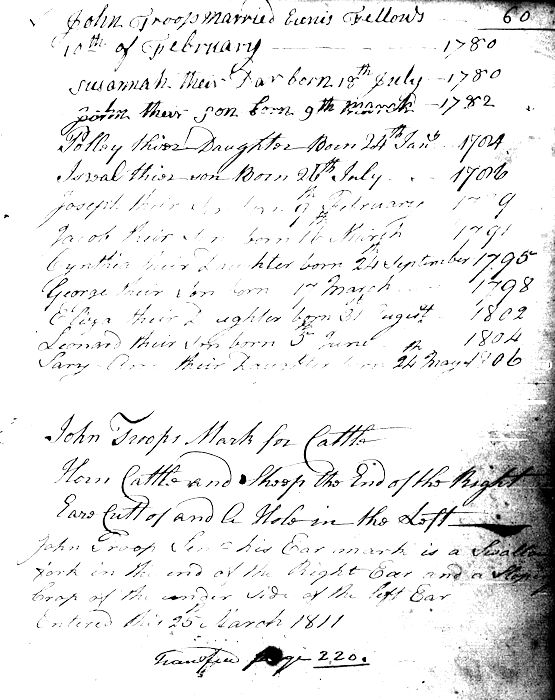 60
John Troop married Eunis Fellows
10th of February 1780
Susannah their Dar born 18th July 1780
John their son born 9th march 1782
Polley thier Daughter Born 24th Jany 1784
Isreal thier son Born 26th July 1786
Joseph their Son born 9th February
Jacob their Son born 16 March 1791
Cynthia their Daughter born 24 September 1795
George their Son born 17 march 1798
Eliza their Daughter born 31 August 1802
Leonard their Son born 5th June 1804
Ann their Daughter born 24th May 1806
John Troops Mark for Cattle
Horn Cattle and Sheep the End of the Right
Eare Cutt of and A Hole in the Left
John Troop Senr his Ear mark is a Swallow
fork in the end of the Right Ear and a Sloping
Crap of the under side of the left Ear
Entered this 25th March 1811
page 220.